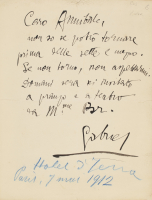 Caro Annibale,
non so se potrò tornare
prima delle sette e mezzo.
Se non torno, non aspettatemi.
Domani sera
a pranzo e a teatro
da Mme
Gabriel
Hotel d'Iena
7 mars 1912